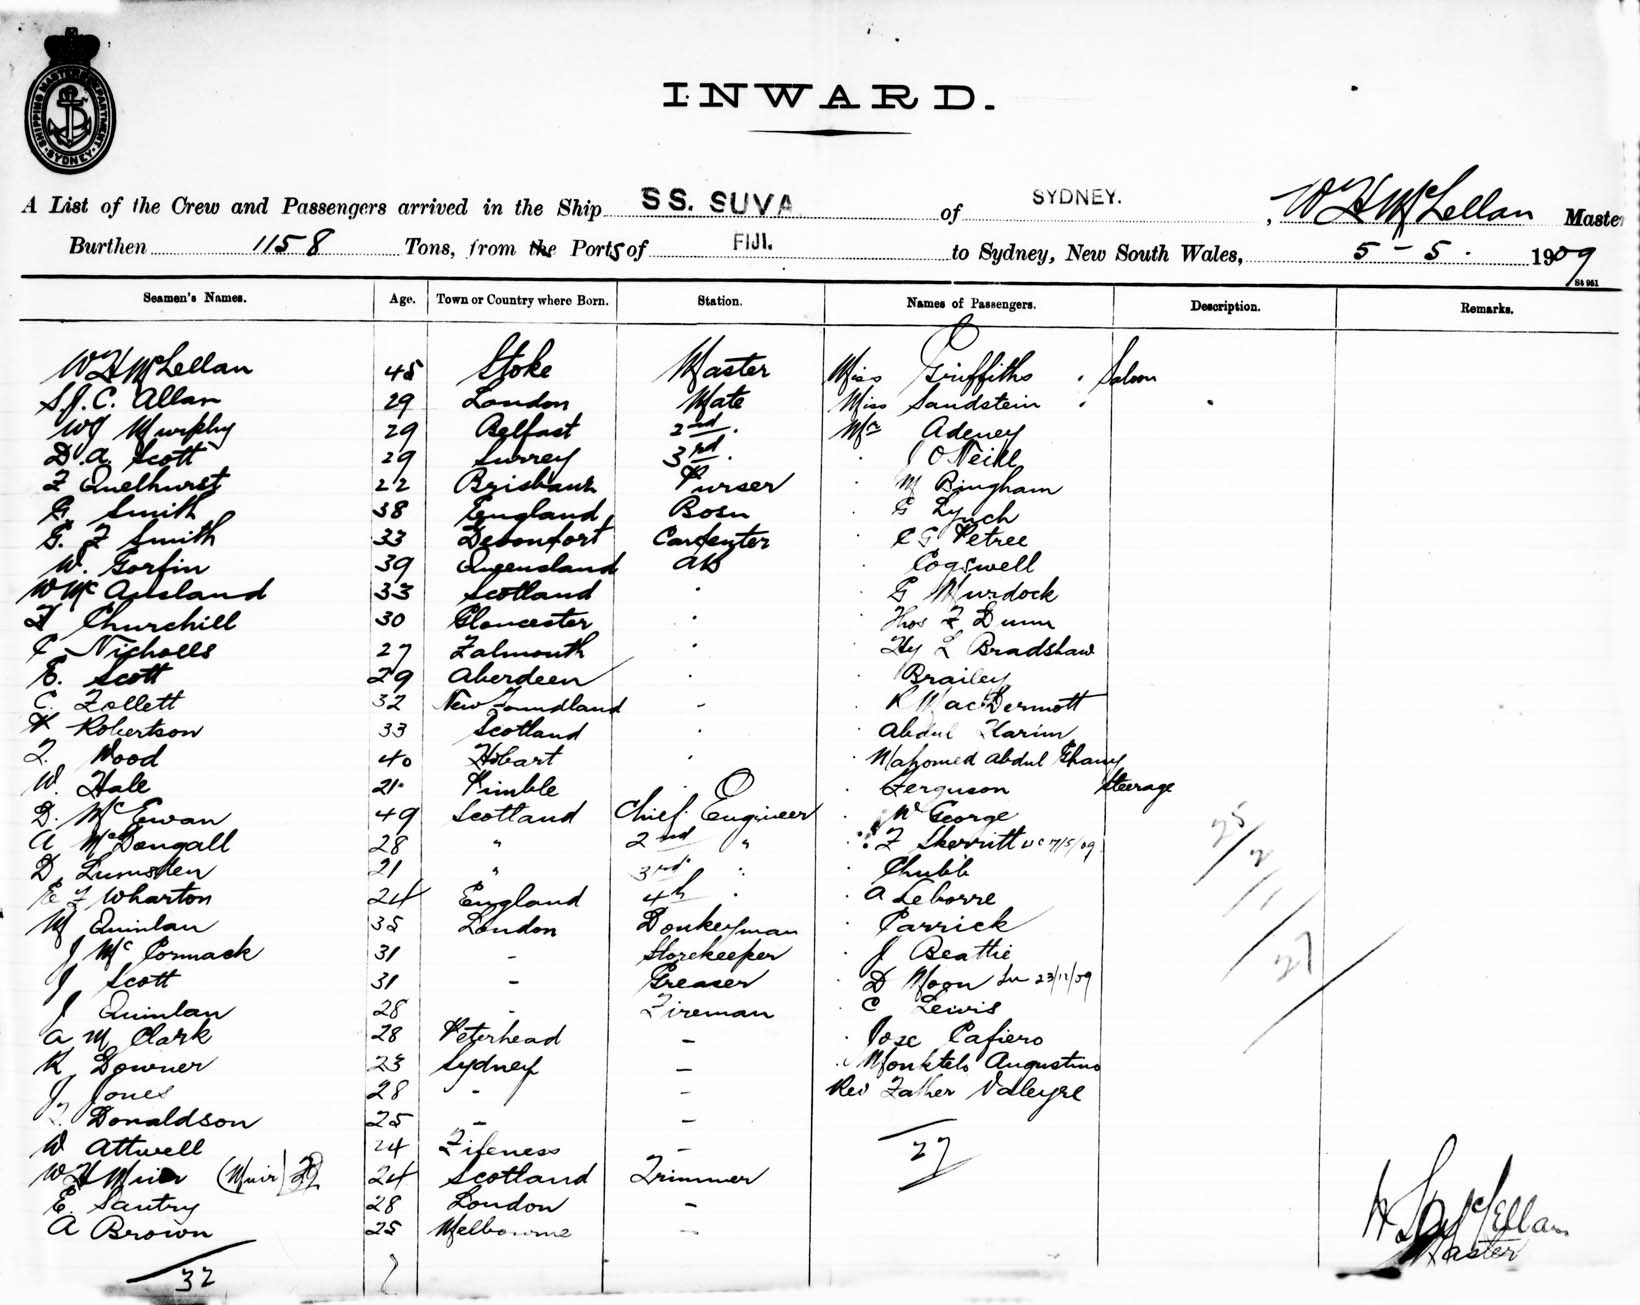 SHIPPING MASTER'S DEPARTMENT
SYDNEY
INWARD.
A List of the Crew and Passengers arrived in the Ship SS. SUVA of SYDNEY. , W H McLellan Master
Burthen 1158 Tons, from the Ports of FIJI. to Sydney, New South Wales, 5 - 5 . 1909
St 951
Seamen's Names. Age. Town or Country where Born. Station. Names of Passengers. Description. Remarks.
W H McLellan 45 Stoke Master Miss Griffiths Saloon
S.J.C. Allan 29 London Mate Miss Sandstein
W J Murphy 29 Belfast 2nd. Mr Adeney
D. A. Scott 29 Surrey 3rd. J O'Neill
F Quelhurst 22 Brisbane Purser M Bingham
G. Smith 38 England Bosn G Lynch
G. F Smith 33 Devonport Carpenter C G Petree
W. Gorfin 39 Queensland AB Cogswell
W McAusland 33 Scotland G Murdock
F Churchill 30 Gloucester Thos F Dunn
C Nicholls 27 Falmouth Hy L Bradshaw
E. Scott 29 Aberdeen Brailey
C. Follett 32 New Foundland R MacDermott
W Robertson 33 Scotland Abdul Karim
F. Wood 40 Hobart Mahomed Abdul Ghany
W. Hall 21 Pimble Ferguson Steerage
D. McEwan 49 Scotland Chief Engineer W George
A McDougall 28 " 2nd " F Skerritt 7/5/09
D Lumsden 21 " 3rd " Chubb
E F Wharton 24 England 4th " A Leborre
M Quinlan 35 London Donkeyman Carrick
J McCormack 31 - Storekeeper J Beattie
J Scott 31 - Greaser D Moon 23/12/09
J Quinlan 28 - Fireman C Lewis
A M Clark 28 Peterhead - Jose Cafiero
R Downer 23 Sydney - Monktels Augustino
J Jones 28 - - Rev Father Valeyre
F. Donaldson 25 - -
W Attwell 24 Fifeness - 27
W H Muir (Muir) 24 Scotland Trimmer
E. Santry 28 London -
A Brown 25 Melbourne -
32
25
2
27
W H McLellan
Master